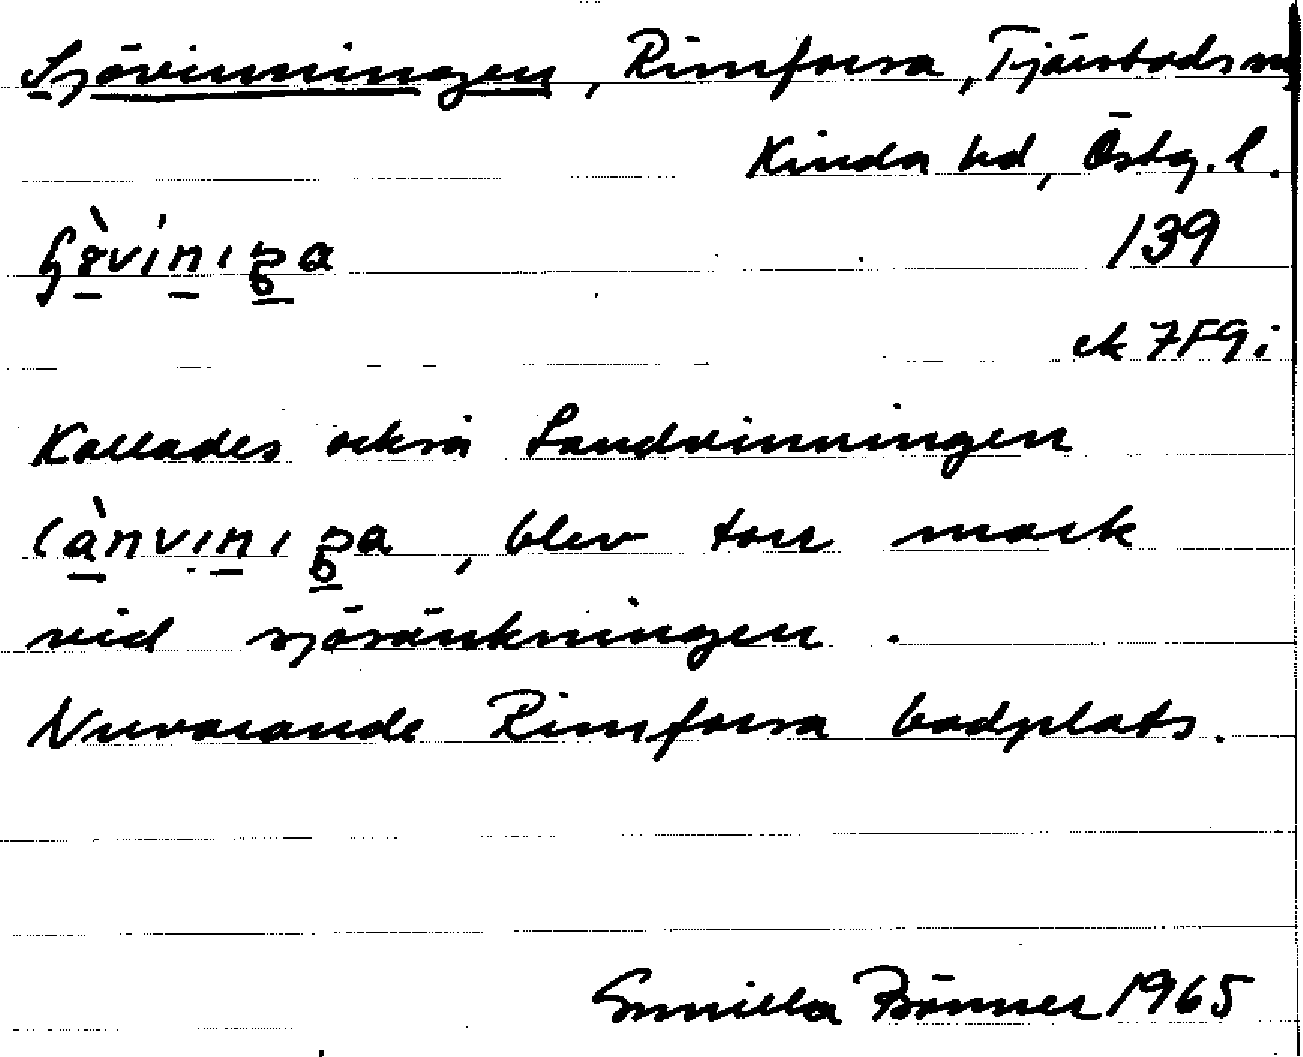 Sjövinningen, Rimforsa, Tjärstads sn
Kinda hd, Östg. l.
139
ek 7F9i
Kallades också Sandvinningen
, blev torr mark
vid sjösänkningen.
Nuvarande Rimforsa badplats.
Gunilla Bönner 1965